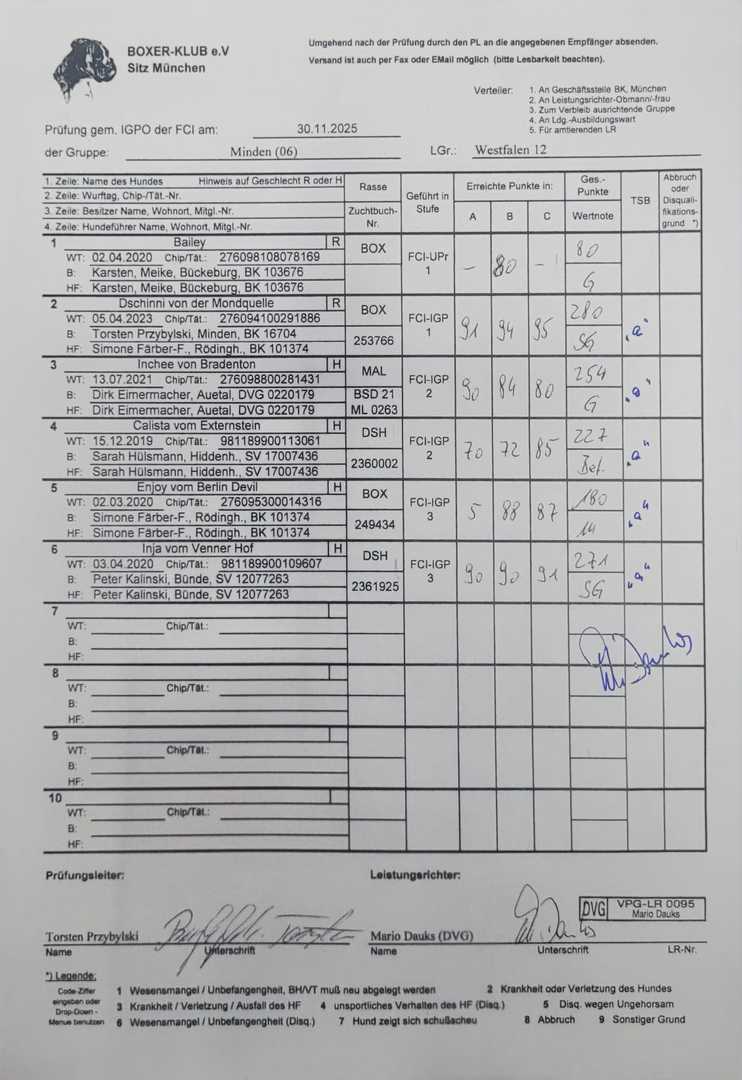 BOXER-KLUB e.V
Sitz München
Umgehend nach der Prüfung durch den PL an die angegebenen Empfänger absenden.
Versand ist auch per Fax oder EMail möglich (bitte Lesbarkeit beachten).
Verteiler: 1. An Geschäftsstelle BK, München
2. An Leistungsrichter-Obmann/-frau
3. Zum Verbleib ausrichtende Gruppe
4. An Ldg.-Ausbildungswart
5. Für amtierenden LR
Prüfung gem. IGPO der FCI am: 30.11.2025
der Gruppe: Minden (06) LGr.: Westfalen 12
1. Zeile: Name des Hundes Hinweis auf Geschlecht R oder H
2. Zeile: Wurftag, Chip-/Tät.-Nr.
3. Zeile: Besitzer Name, Wohnort, Mitgl.-Nr.
4. Zeile: Hundeführer Name, Wohnort, Mitgl.-Nr.
Rasse
Zuchtbuch-Nr.
Geführt in Stufe
Erreichte Punkte in:
A B C
Ges.-Punkte
Wertnote
TSB
Abbruch oder Disquali-fikations-grund *)
1 Bailey R BOX FCI-UPr 1 – 80 – 80 G
WT: 02.04.2020 Chip/Tät.: 276098108078169
B: Karsten, Meike, Bückeburg, BK 103676
HF: Karsten, Meike, Bückeburg, BK 103676
2 Dschinni von der Mondquelle R BOX 253766 FCI-IGP 1 91 94 95 280 SG „a"
WT: 05.04.2023 Chip/Tät.: 276094100291886
B: Torsten Przybylski, Minden, BK 16704
HF: Simone Färber-F., Rödingh., BK 101374
3 Inchee von Bradenton H MAL BSD 21 ML 0263 FCI-IGP 2 90 84 80 254 G „a"
WT: 13.07.2021 Chip/Tät.: 276098800281431
B: Dirk Eimermacher, Auetal, DVG 0220179
HF: Dirk Eimermacher, Auetal, DVG 0220179
4 Calista vom Externstein H DSH 2360002 FCI-IGP 2 70 72 85 227 Bef. „a"
WT: 15.12.2019 Chip/Tät.: 981189900113061
B: Sarah Hülsmann, Hiddenh., SV 17007436
HF: Sarah Hülsmann, Hiddenh., SV 17007436
5 Enjoy vom Berlin Devil H BOX 249434 FCI-IGP 3 5 88 87 180 „a"
WT: 02.03.2020 Chip/Tät.: 276095300014316
B: Simone Färber-F., Rödingh., BK 101374
HF: Simone Färber-F., Rödingh., BK 101374
6 Inja vom Venner Hof H DSH 2361925 FCI-IGP 3 90 90 91 271 SG „a"
WT: 03.04.2020 Chip/Tät.: 981189900109607
B: Peter Kalinski, Bünde, SV 12077263
HF: Peter Kalinski, Bünde, SV 12077263
7
WT: Chip/Tät.:
B:
HF:
8
WT: Chip/Tät.:
B:
HF:
9
WT: Chip/Tät.:
B:
HF:
10
WT: Chip/Tät.:
B:
HF:
Prüfungsleiter: Leistungsrichter:
DVG VPG-LR 0095
Mario Dauks
Torsten Przybylski Mario Dauks (DVG)
Name Unterschrift Name Unterschrift LR-Nr.
*) Legende:
Code-Ziffer eingeben oder Drop-Down-Menue benutzen
1 Wesensmangel / Unbefangenheit, BH/VT muß neu abgelegt werden 2 Krankheit oder Verletzung des Hundes
3 Krankheit / Verletzung / Ausfall des HF 4 unsportliches Verhalten des HF (Disq.) 5 Disq. wegen Ungehorsam
6 Wesensmangel / Unbefangengheit (Disq.) 7 Hund zeigt sich schußscheu 8 Abbruch 9 Sonstiger Grund